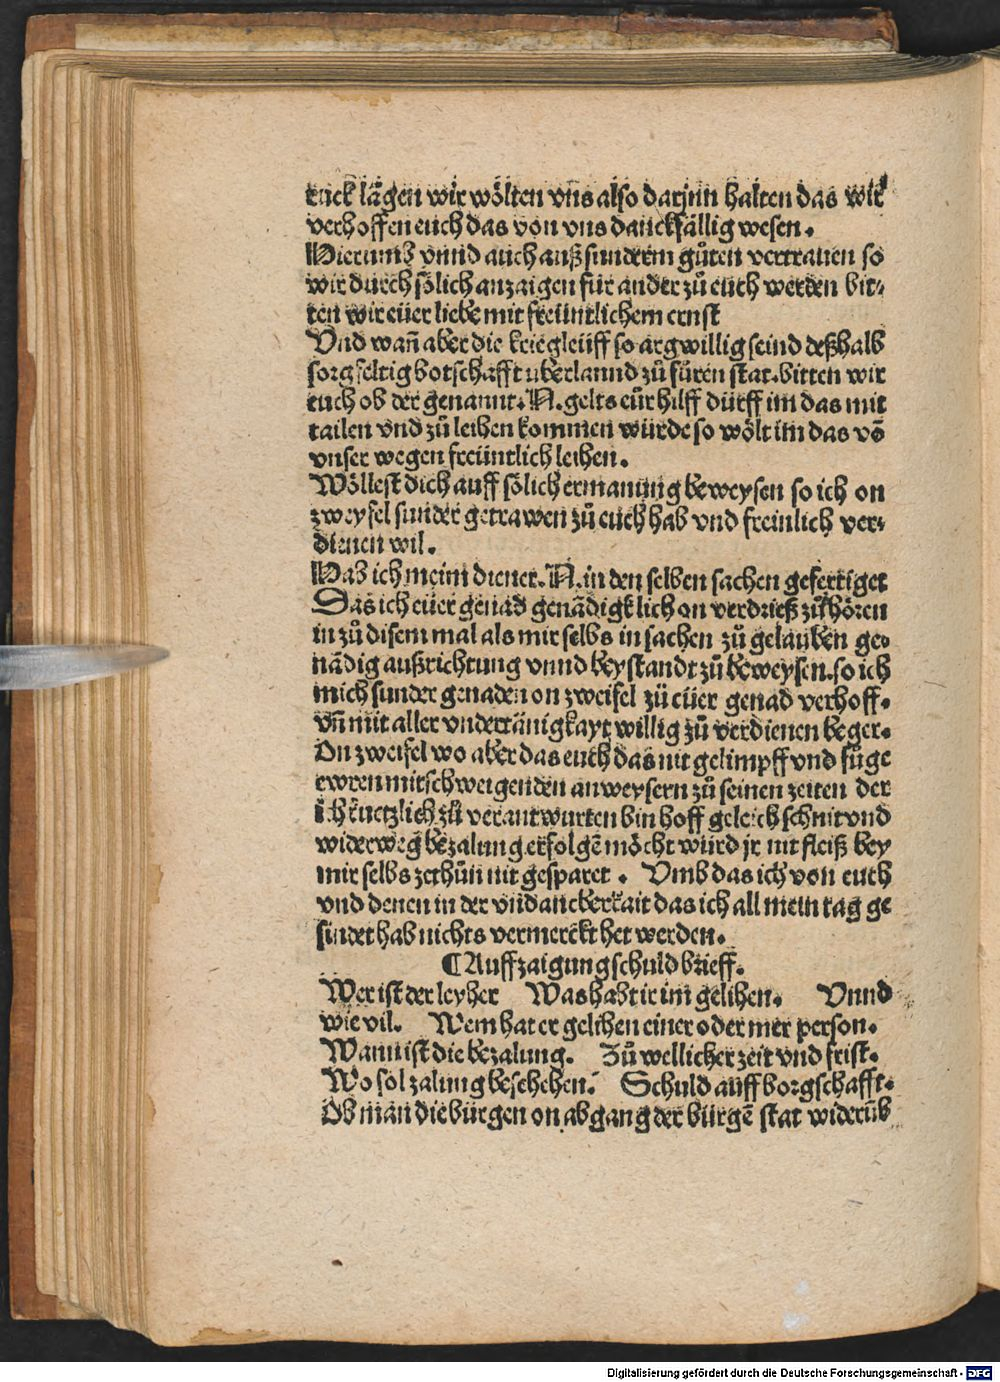 ruck lägen wir wölten vns also darjnn halten das wir
verhoffen euch das von vns danckfällig wesen.
Hierumb vnnd auch auß sunderm gůten vertrauen so
wir durch sölich anzaigen für ander zů euch werden bit-
ten wir eüer liebe mit freüntlichem ernst
Vnd wañ aber die kriegleüff so argwillig seind deßhalb
sorgfeltig botschafft uberlannd zů füren stat. bitten wir
euch ob der genannt. N. gelts eür hilff dürff im das mit
tailen vnd zů leihen kommen würde so wölt im das vō
vnser wegen freüntlich leihen.
Wöllest dich auff sölich ermanung beweysen so ich on
zweyfel sunder getrawen zů euch hab vnd freinlich ver-
dienen wil.
Hab ich meim diener. N. in den selben sachen gefertiget
Das ich eüer genad genädigklich on verdrieß zůhören
in zů disem mal als mir selbs in sachen zů gelauben ge-
nädig außrichtung vnnd beystandt zů beweysen. so ich
mich sunder genaden on zweifel zů eüer genad verhoff.
vñ mit aller vndertänigkayt willig zů verdienen beger.
On zweifel wo aber das euch das nit gelimpff vnd füge
ewren mitschweigenden anweysern zů seinen zeiten der
ich nutzlich zů verantwurten bin hoff geleich schnit vnd
widerweg bezalung erfolgē möcht würd jr nit fleiß bey
mir selbs zethůn nit gesparet. Vmb das ich von euch
vnd denen in der vndanckerkait das ich all mein tag ge
sindet hab nichts vermerckt het werden.
¶Auffzaigung schuldbrieff.
Wer ist der leyher Was hab ir im gelihen. Vnnd
wie vil. Wem hat er gelihen einer oder mer person.
Wann ist die bezalung. Zů wellicher zeit vnd frist.
Wo sol zalung beschehen. Schuld auff borgschafft.
Ob man die bürgen on abgang der bürgē stat widerūb
Digitalisierung gefördert durch die Deutsche Forschungsgemeinschaft - DFG